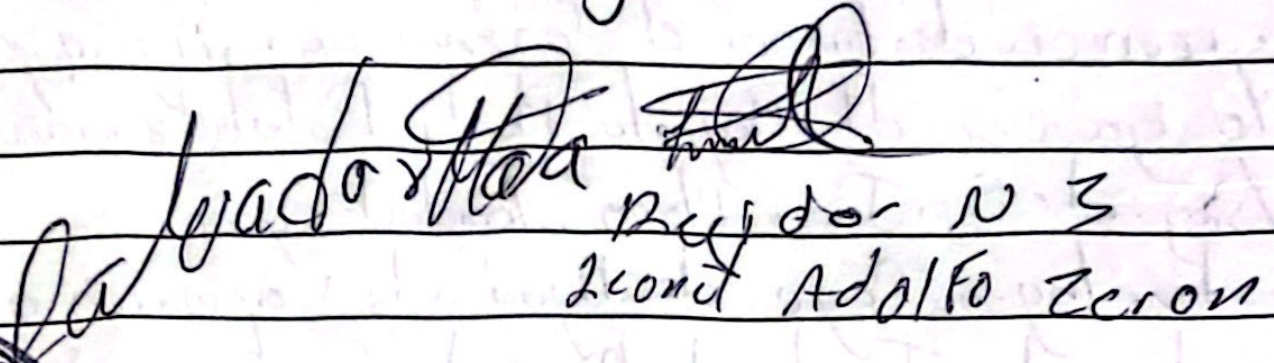 Salvador Mota
Regidor N 3
Leonel Adolfo Zeron